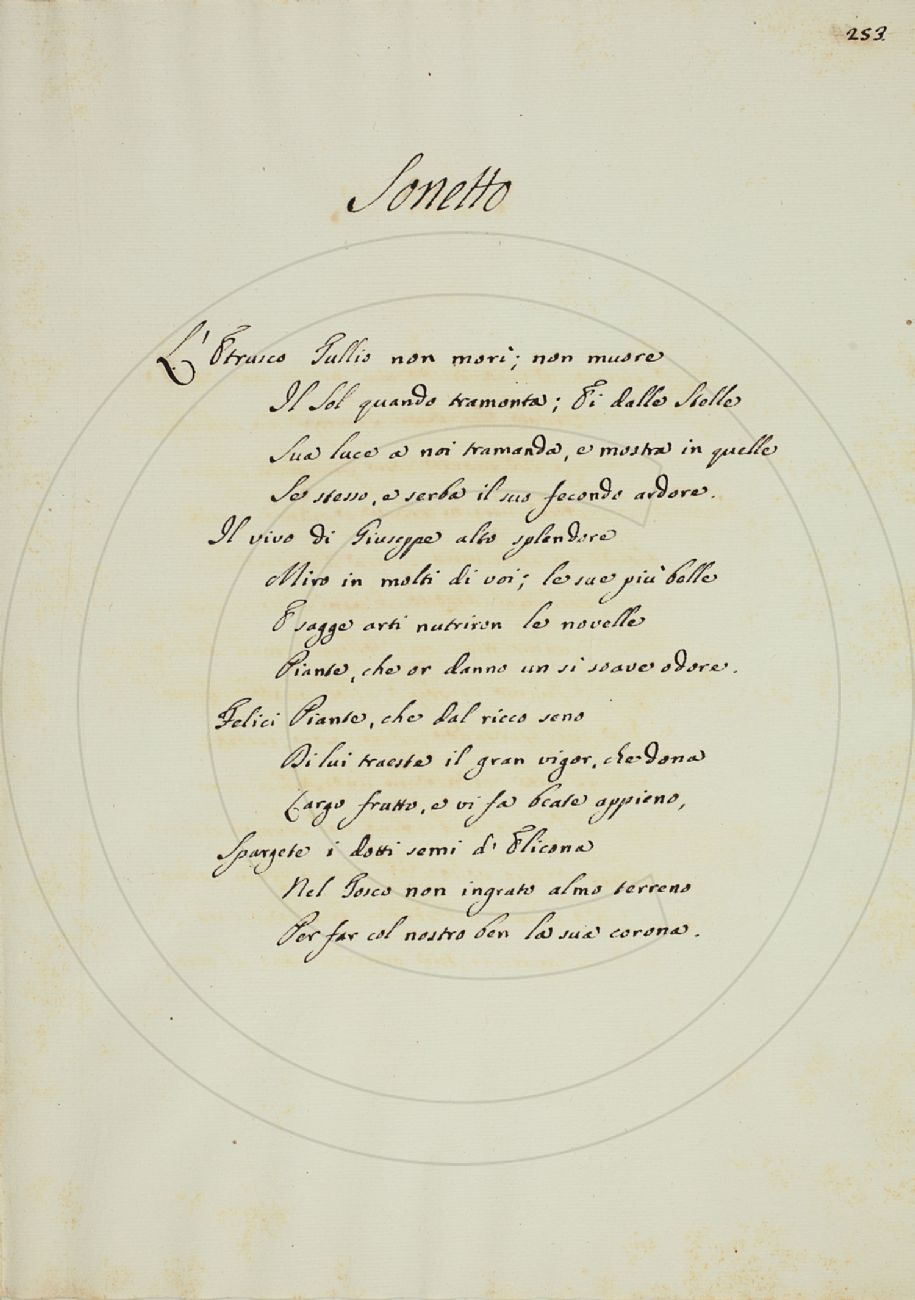 253
Sonetto
L'Etrusco Tullio non morì; non muore
Il Sol quando tramonta; Ei dalle Stelle
Sua luce a noi tramanda, e mostra in quelle
Se stesso, e serba il suo fecondo ardore.
Il vivo di Giuseppe alto splendore
Miro in molti di voi; le sue più belle
E sagge arti nutriron le novelle
Piante, che or danno un si soave odore.
Felici Piante, che dal ricco seno
Di lui traeste il gran vigor, che dona
Largo frutto, e vi fa beate appieno,
Spargete i dotti semi d'Elicona
Nel Tosco non ingrato almo terreno
Per far col nostro ben la sua corona.